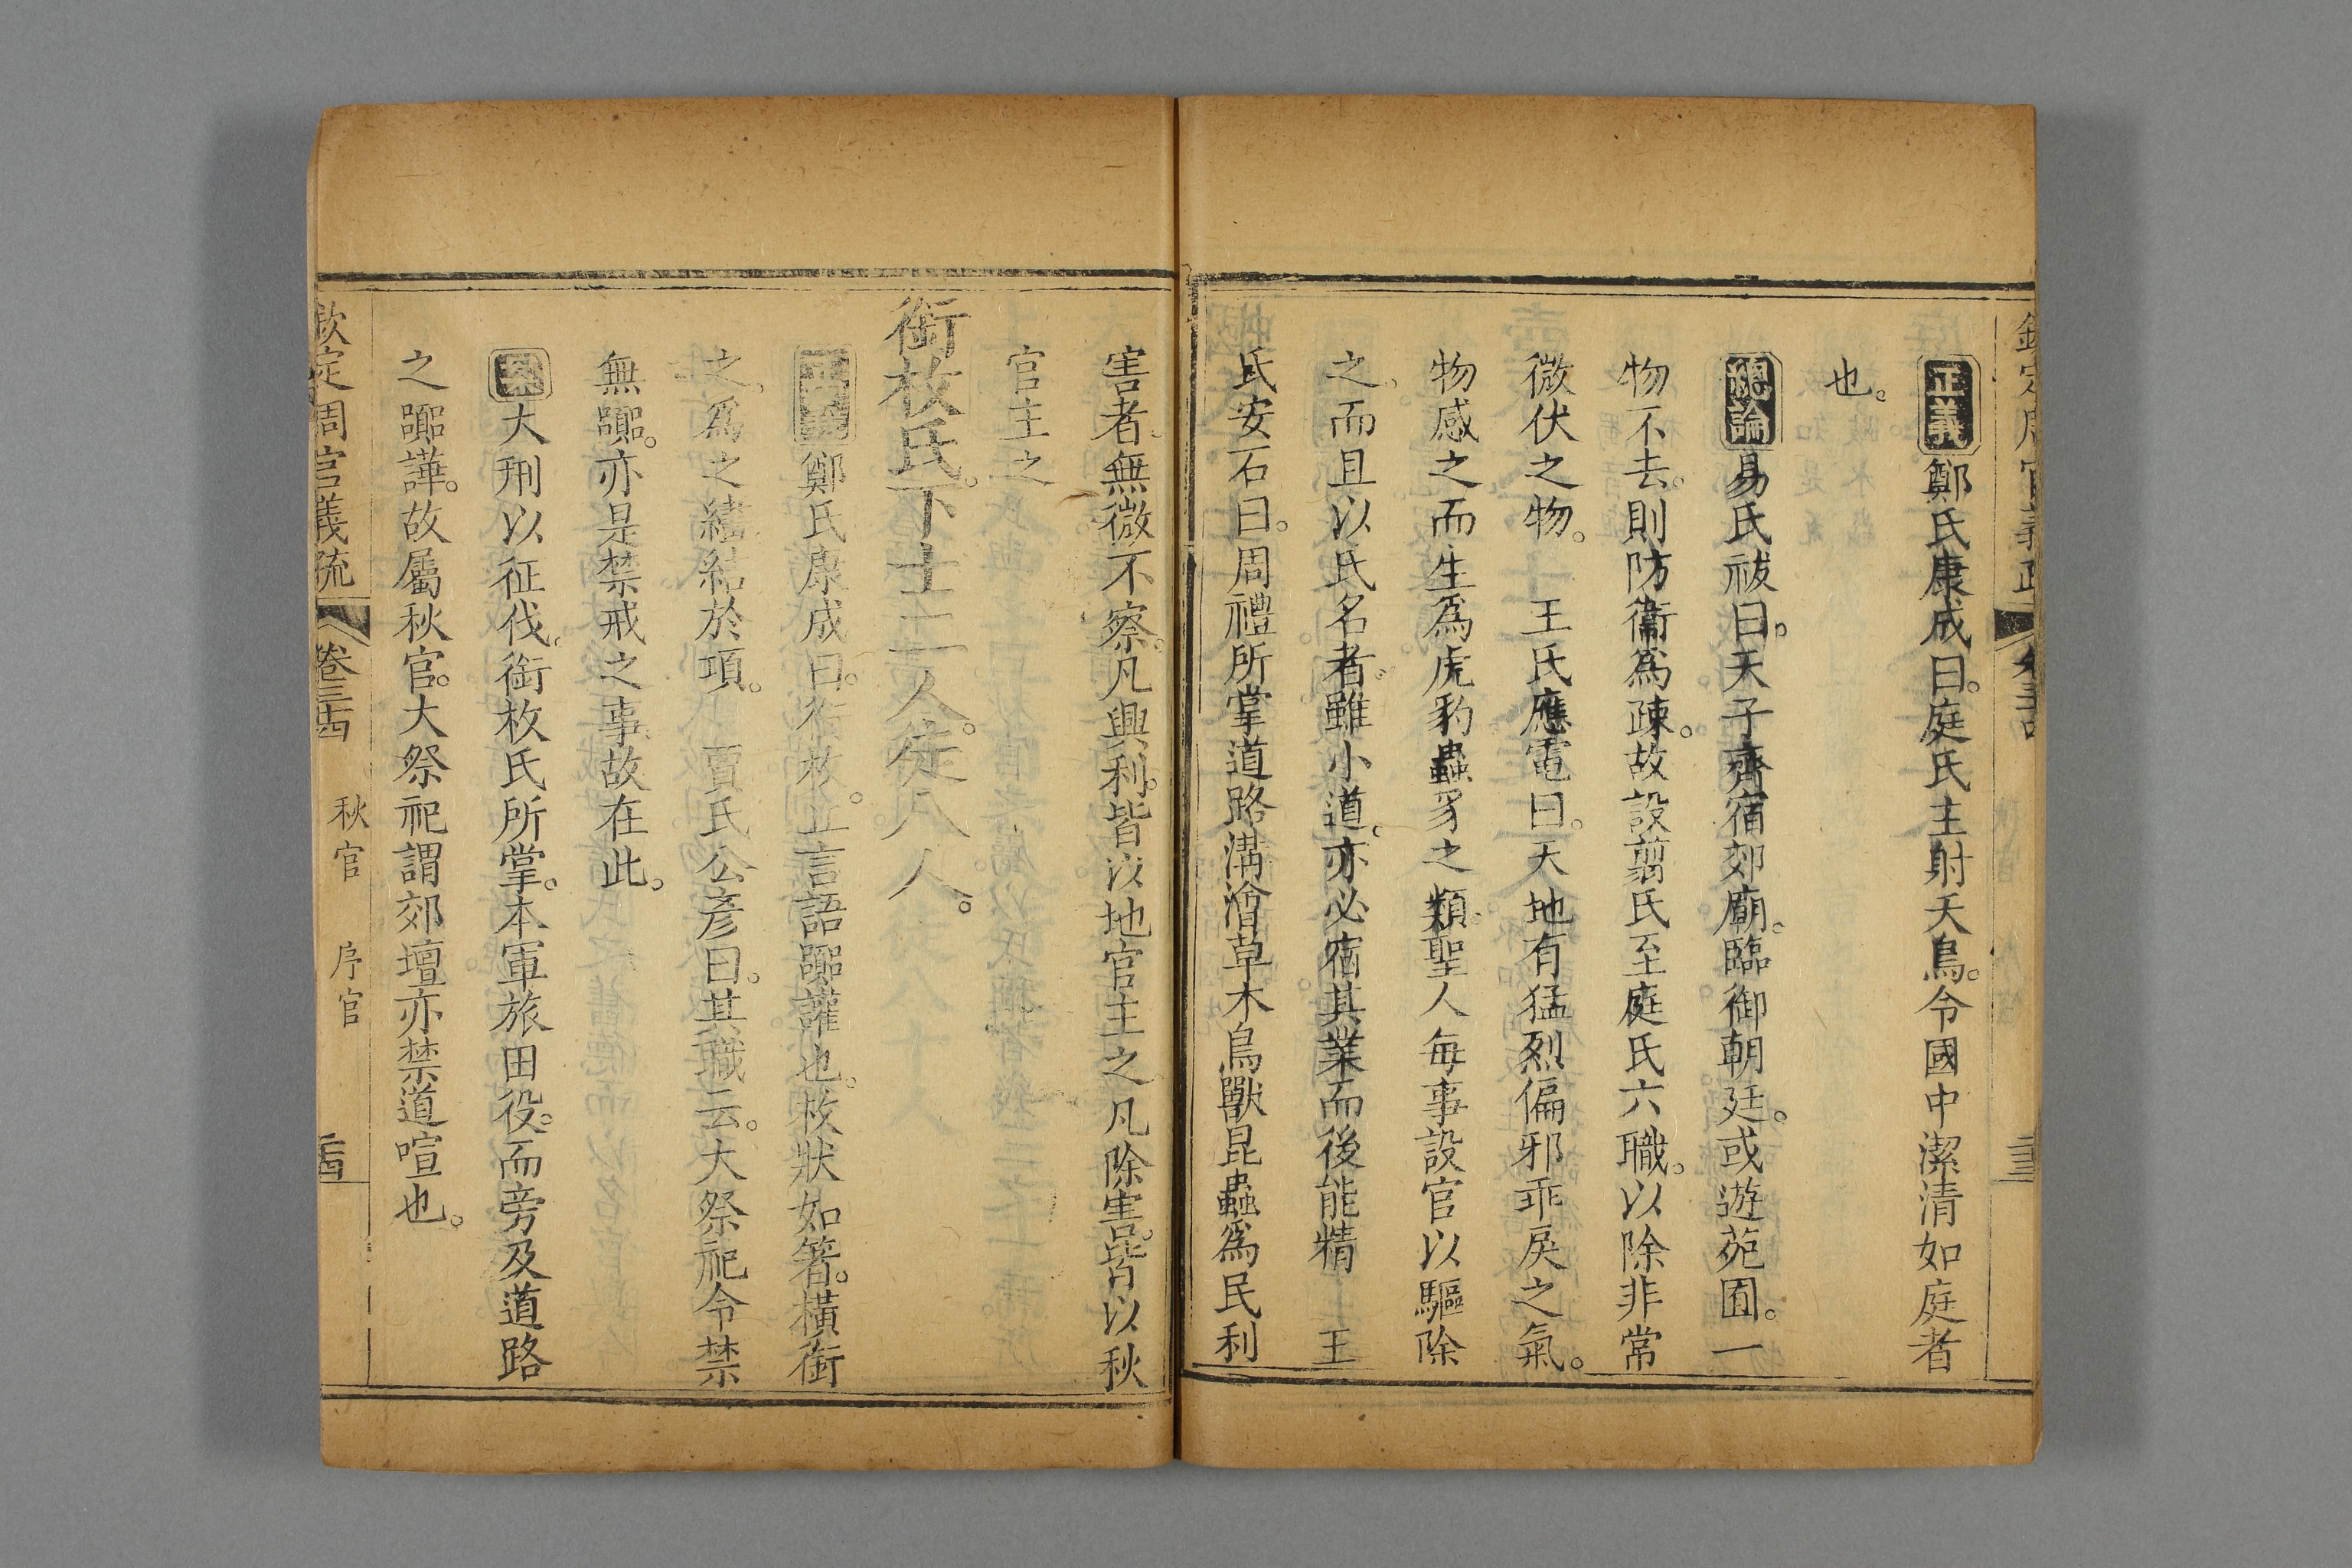 正義鄭氏康成曰。庭氏主射夭鳥。令國中潔清如庭者
也。
總論易氏祓曰。天子齊宿郊廟。臨御朝廷。或遊苑囿。一
物不去。則防衞爲疎。故設翦氏至庭氏六職。以除非常
微伏之物。 王氏應電曰。天地有猛烈偏邪乖戾之氣。
物感之而生爲虎豹蟲豸之類。聖人毎事設官以驅除
之。而且以氏名者。雖小道。亦必宿其業而後能精 王
氏安石曰。周禮所掌道路溝澮草木鳥獸昆蟲爲民利
害者。無微不察。凡興利。皆以地官主之。凡除害。皆以秋
官主之
銜枚氏。下士二人。徒八人。
正義鄭氏康成曰。銜枚。止言語嘂讙也。枚狀如箸。橫銜
之。爲之繣結於項。 賈氏公彥曰。其職云。大祭祀令禁
無嘂。亦是禁戒之事。故在此。
案大刑以征伐。銜枚氏所掌。本軍旅田役。而旁及道路
之嘂譁。故屬秋官。大祭祀謂郊壇亦禁道喧也。
欽定周官義疏 卷三十四 秋官 序官 二十四